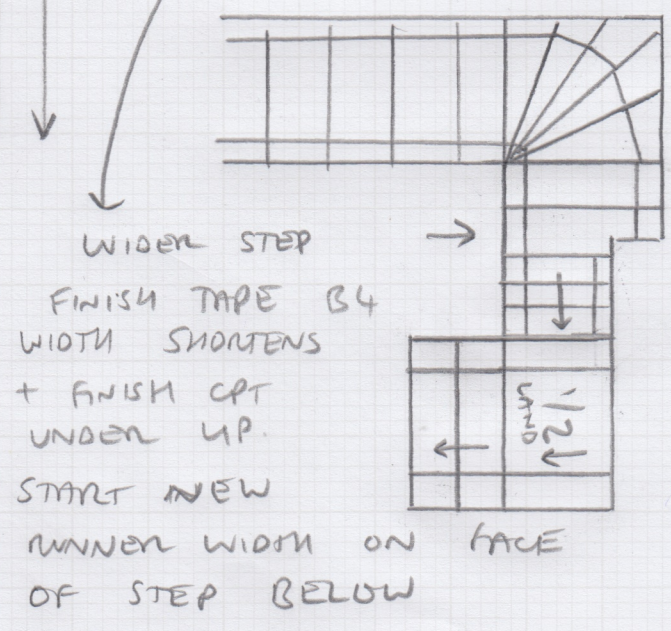 WIDER STEP
FINISH TAPE B4
WIDTH SHORTENS
+ FINISH CPT
UNDER LIP.
START NEW
RUNNER WIDTH ON FACE
OF STEP BELOW
1/2
LAND